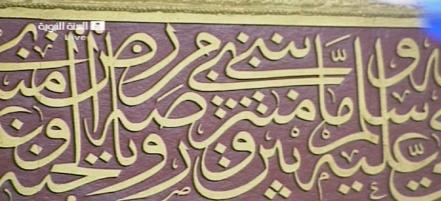 السنة النبوية
Live
عليه وسلم ما بين بيتي ومنبري روضة من رياض الجنة